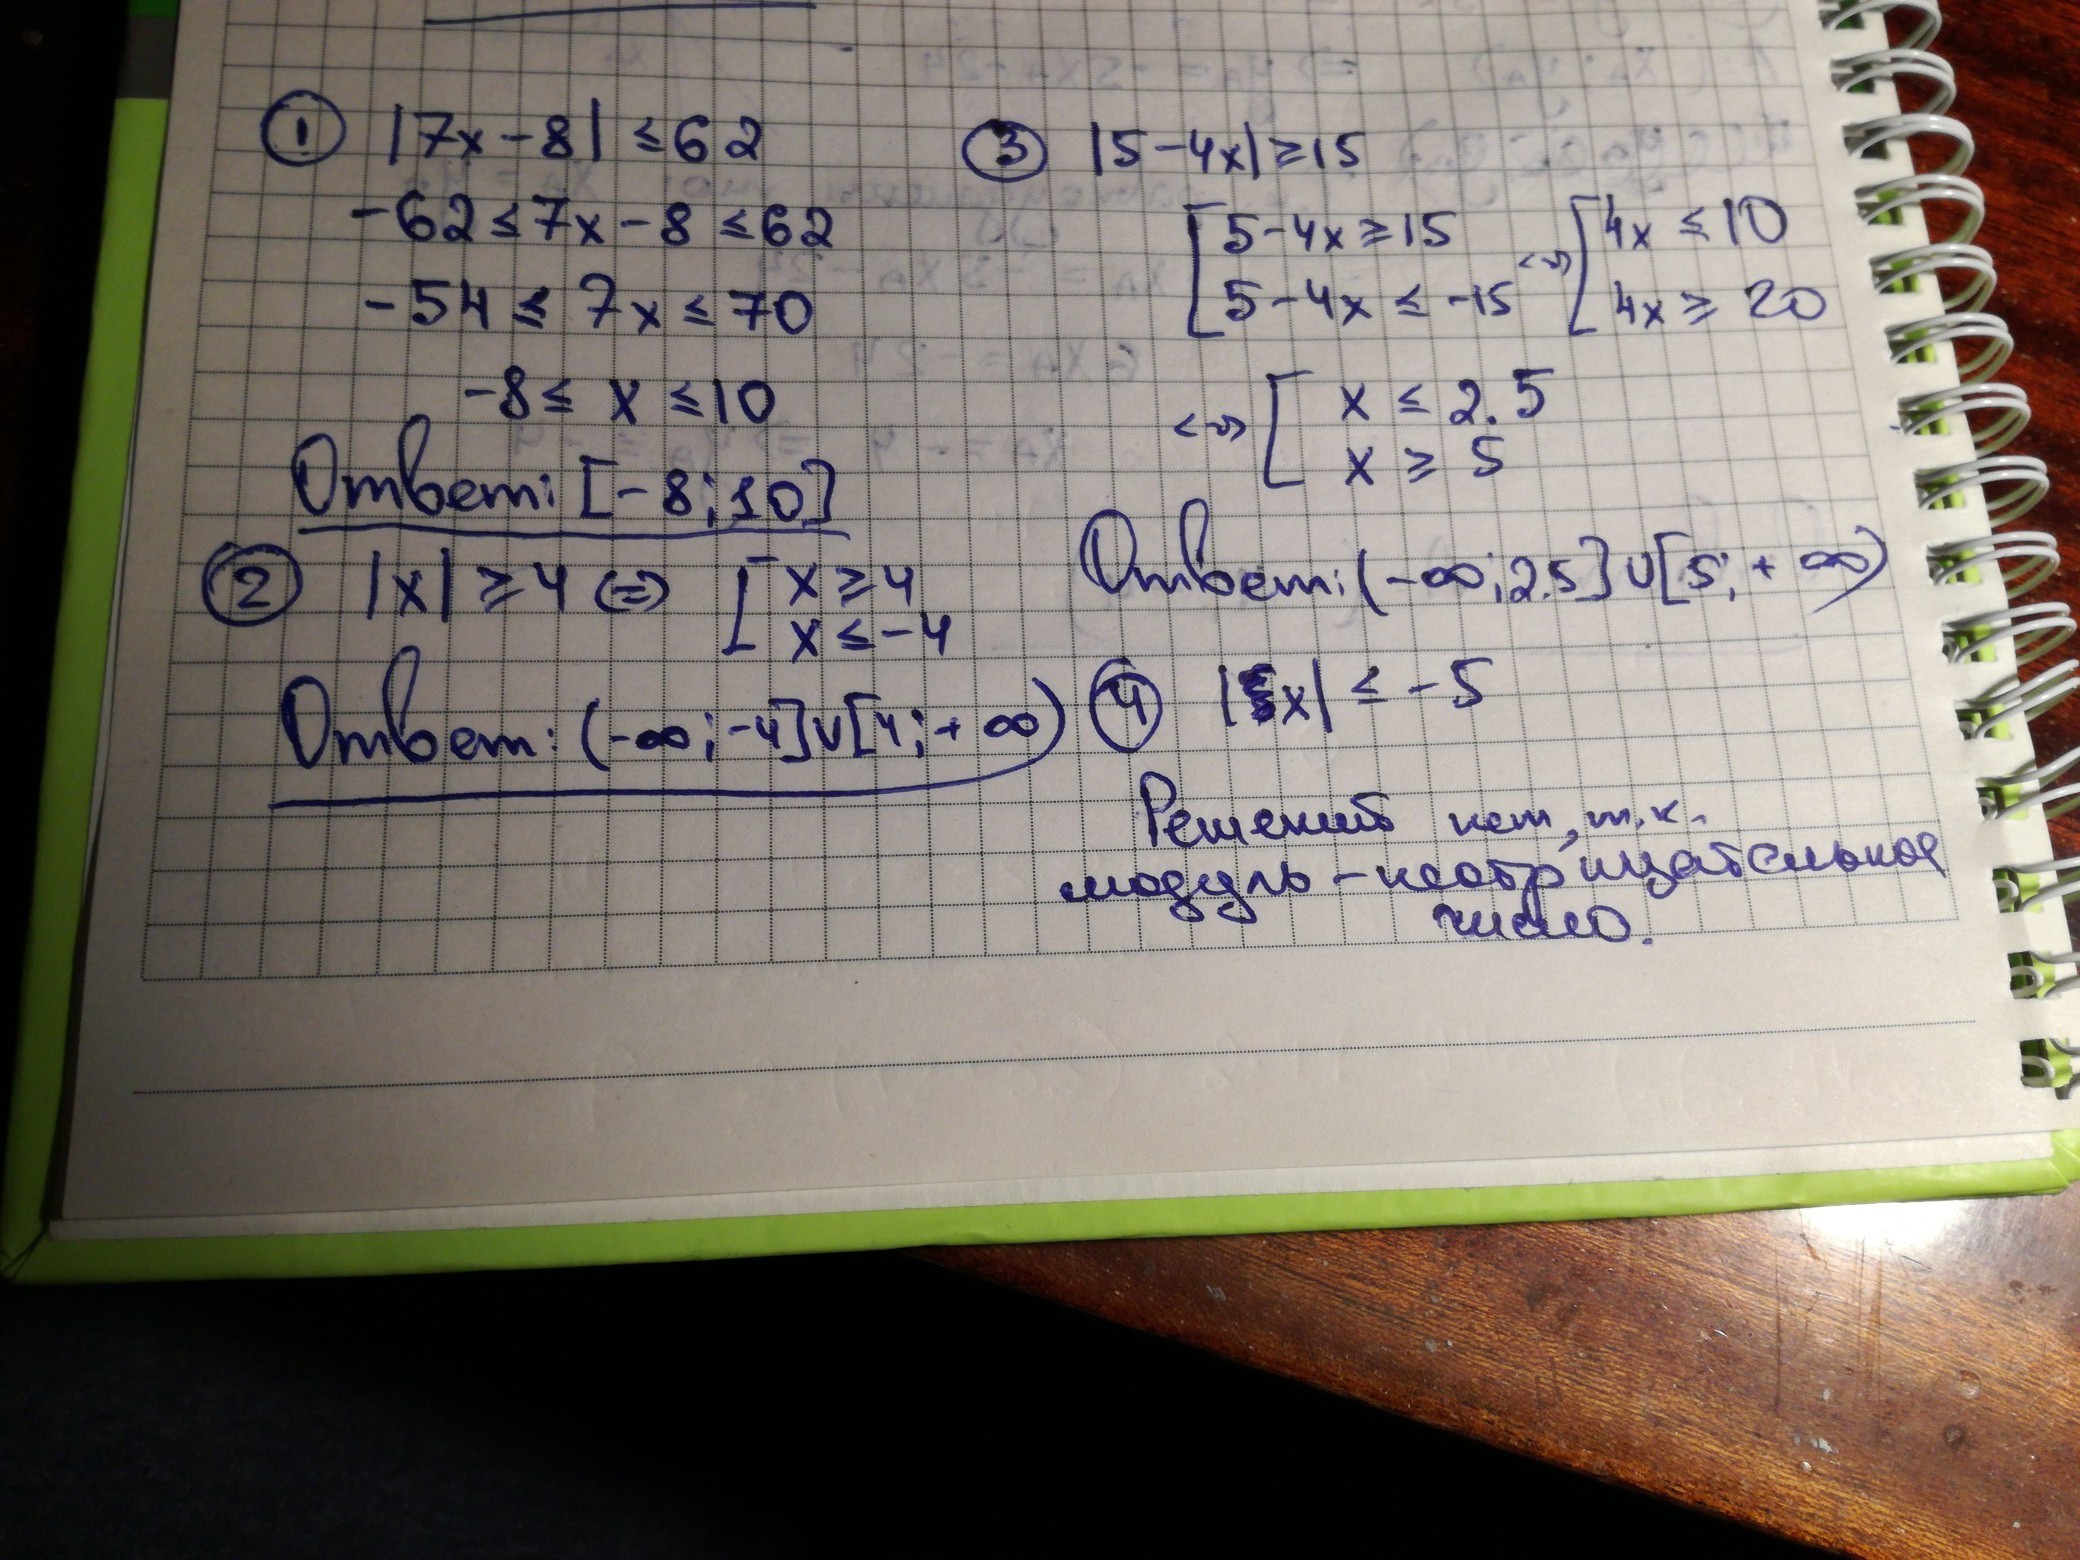 1 |7x-8| ≤ 62
-62 ≤ 7x-8 ≤ 62
-54 ≤ 7x ≤ 70
-8 ≤ x ≤ 10
Ответ: [-8; 10]
2 |x| ≥ 4 <=> [ x ≥ 4
x ≤ -4
Ответ: (-∞; -4] ∪ [4; +∞)
3 |5-4x| ≥ 15
[ 5-4x ≥ 15 <=> [ 4x ≤ 10
5-4x ≤ -15 4x ≥ 20
<=> [ x ≤ 2.5
x ≥ 5
Ответ: (-∞; 2.5] ∪ [5; +∞)
4 |5x| ≤ -5
Решений нет, т.к.
модуль - неотрицательное
число.